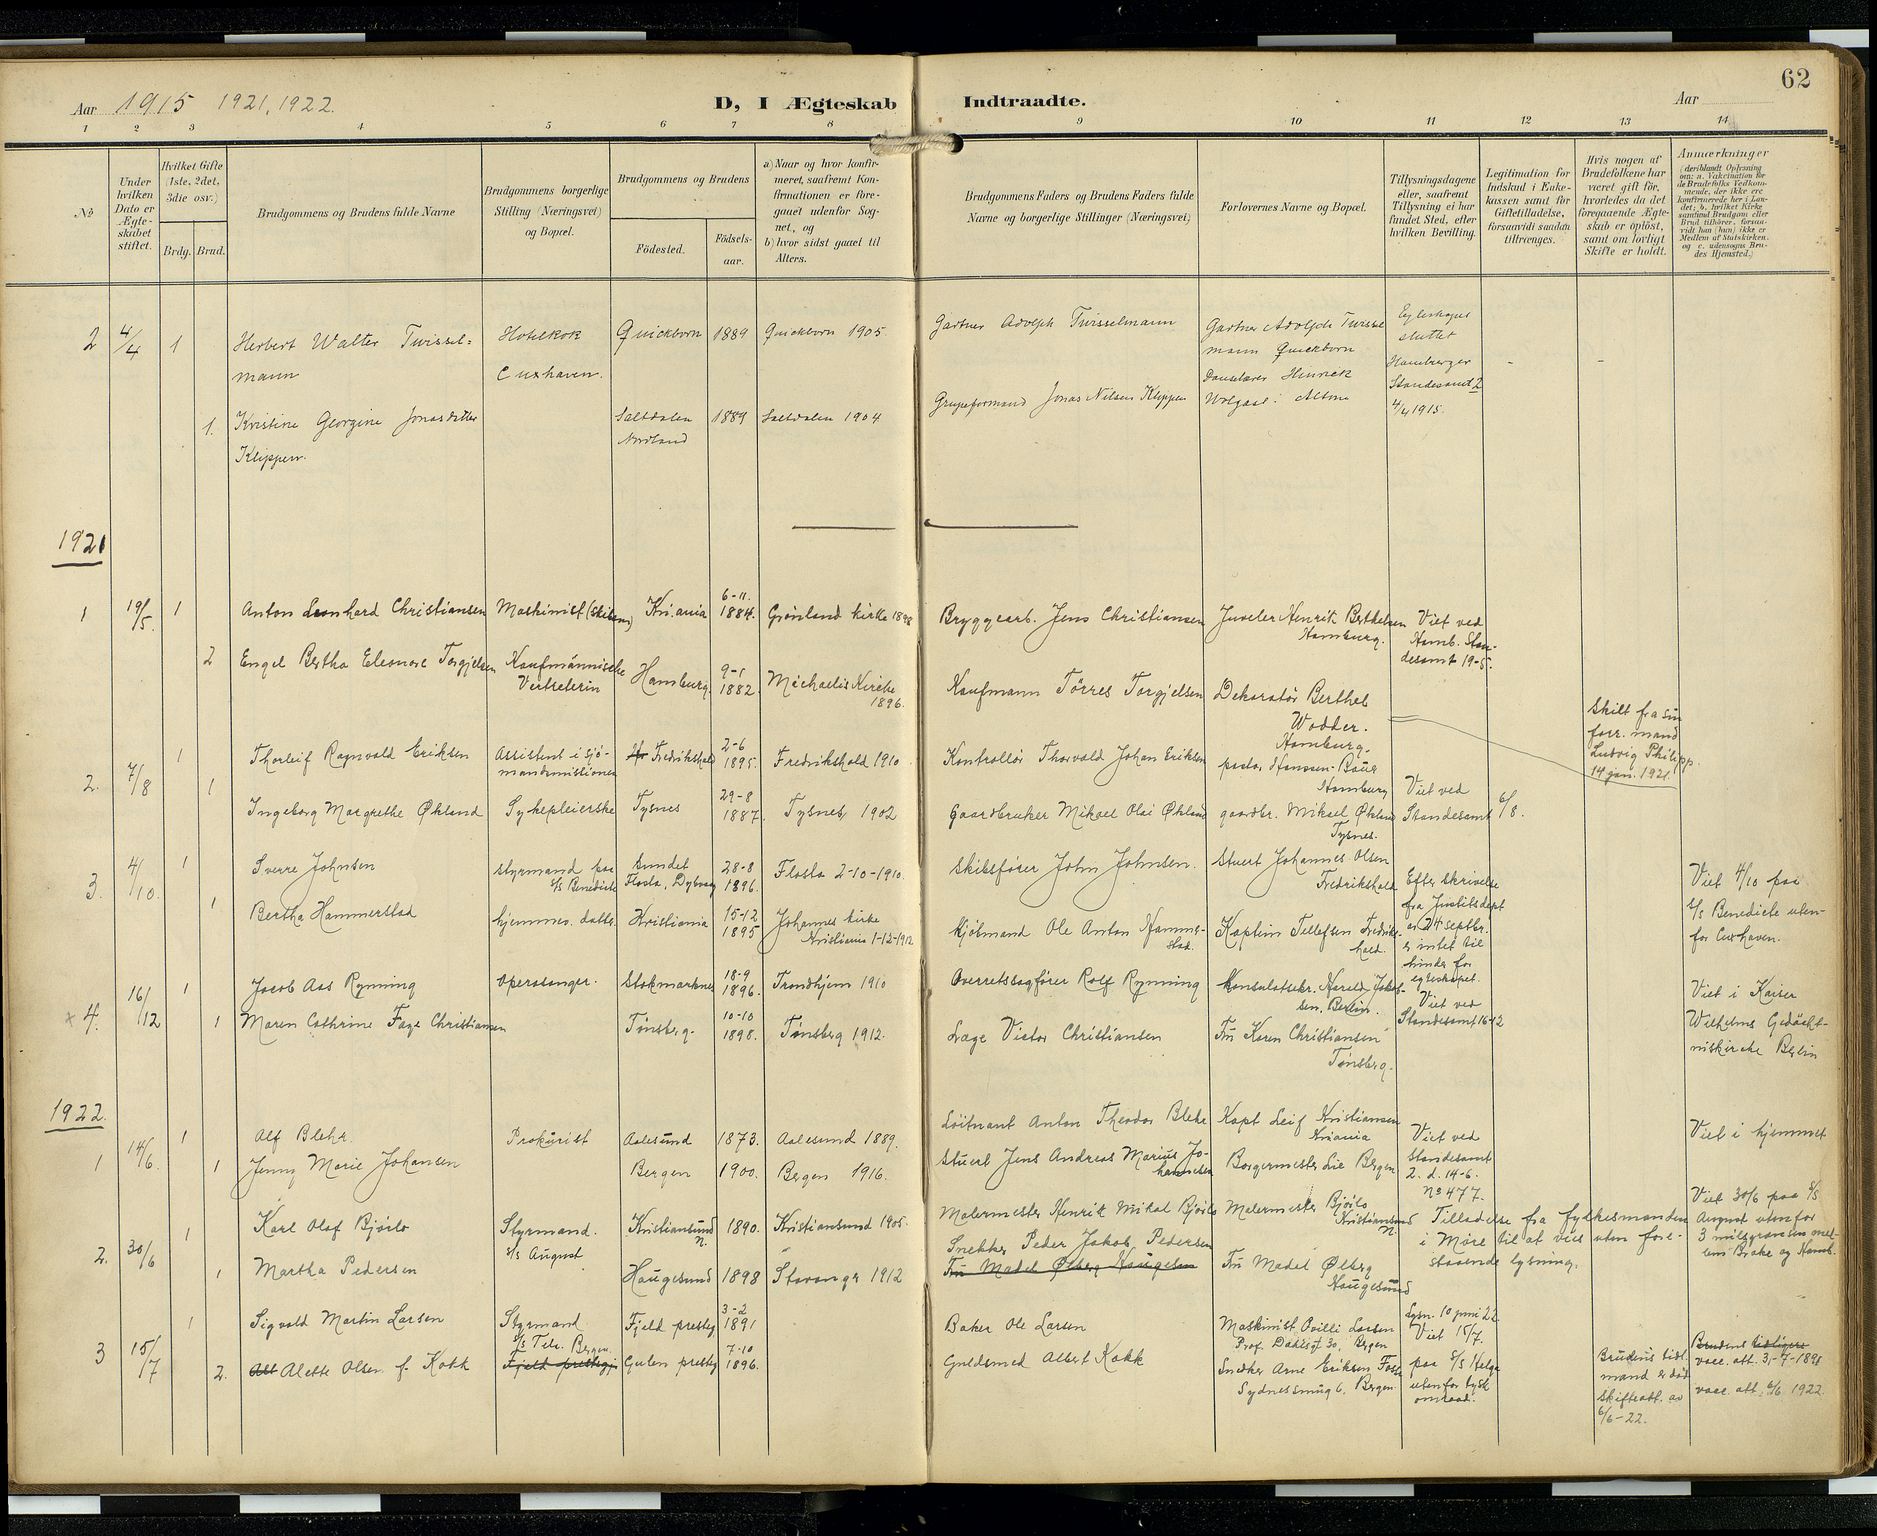 62
Aar 1915 1921, 1922.
D, I Ægteskab Indtraadte.
Aar
1 2 3 4 5 6 7 8 9 10 11 12 13 14
No
Under hvilken Dato er Ægteskabet stiftet.
Hvilket Gifte (1ste, 2det, 3die osv.)
Brdg. Brud.
Brudgommens og Brudens fulde Navne
Brudgommens borgerlige Stilling (Næringsvei) og Bopæl.
Brudgommens og Brudens
Fødested.
Fødselsaar.
a) Naar og hvor konfirmeret, saafremt Konfirmationen er foregaaet udenfor Sognet, og
b) hvor sidst gaaet til Alters.
Brudgommens Faders og Brudens Faders fulde Navne og borgerlige Stillinger (Næringsvei)
Forlovernes Navne og Bopæl.
Tillysningsdagene eller, saafremt Tillysning ei har fundet Sted, efter hvilken Bevilling.
Legitimation for Indskud i Enkekassen samt for Giftetilladelse, forsaavidt saadan tiltrænges.
Hvis nogen af Brudefolkene har været gift før, hvorledes da det foregaaende Ægteskab er opløst, samt om lovligt Skifte er holdt.
Anmærkninger
(deriblandt Oplysning om: a. Vakcination for de Brudefolks Vedkommende, der ikke ere konfirmerede her i Landet; b. hvilket Kirkesamfund Brudgom eller Brud tilhører, forsaavidt han (hun) ikke er Medlem af Statskirken, og c. udensogns Brudes Hjemsted.)
2 4/4 1
Herbert Walter Twisselmann
Hotelkok
Cuxhaven.
Quickborn 1889 Quickborn 1905.
Gartner Adolph Twisselmann
Gartner Adolph Twisselmann Quickborn
Hinrich
Hamburger Standesamt 2
4/4 1915.
- -
1. Kristine Georgine Jonasdatter Klippen.
Saltdalen Nordland 1889 Saltdalen 1904
Grubeformand Jonas Nilsen Klippen
1921
1 19/5. 1
Anton Leonhard Christiansen
Kr.ania 6-11. 1884. Grønland kirke 1898
Bryggearb. Jens Christiansen
Juveler Henrik Berthelsen Hamburg.
Viet ved Hamb. Standesamt 19-5.
2 Engel Bertha Eleonore Torgjelsen
Kaufmännische Vertreterin
Hamburg. 9-1 1882. Michaelis Kirche 1896.
Kaufmann Tørres Torgjelsen
Dekoratør Berthel Wodder. Hamburg.
Skilt fra sin forr. mand Ludvig Philipp. 14 jan. 1921.
2. 7/8 1
Thorleif Ragnvald Eriksen
Assistent i sjømandsmisjonen
Fredrikshald 2-6 1895. Fredrikshald 1910
Kontrollør Thorvald Johan Eriksen
pastor Hanssen-Bauer Hamburg
Viet ved Standesamt 6/8.
1 Ingeborg Margrethe Økland
Sykepleierske
Tysnes 29-8 1887. Tysnes 1902
Gaardbruker Mikael Olai Økland
gaardbr. Mikael Økland Tysnes.
3. 4/10. 1
Sverre Johnsen
Styrmand paa s/s Benedicte
Sundet Flosta, Dybvaag 28-8 1896. Flosta 2-10-1910.
Skibsfører John Johnsen.
Stuert Johannes Olsen Fredrikshald
Efter skrivelse fra Justitsdept av 24 septbr. er intet til hinder for egteskapet.
Viet 4/10 paa s/s Benedicte utenfor Cuxhaven.
1 Bertha Hammerstad
hjemmev. datter
Kristiania 15-12 1895 Johannes kirke Kristiania 1-12-1912
Kjøbmand Ole Anton Hammerstad.
Kaptein Tellefsen Fredrikshald.
x 4. 16/12 1
Jacob Aas Rynning
Operasanger.
Stokmarknes 18-9 1896. Trondhjem 1910
Overretssagfører Rolf Rynning
Konsulatsekr. Harald Jakobsen, Berlin.
Viet ved Standesamt 16-12
Viet i Kaiser Wilhelms Gedächtniskirche Berlin
1 Maren Cathrine Faye Christiansen
Tønsberg. 10-10 1898. Tønsberg 1912.
Læge Victor Christiansen
Fru Karen Christiansen Tønsberg.
1922.
1 14/6. 1
Alf Blehr
Prokurist
Aalesund 1873. Aalesund 1889.
Løitnant Anton Theodor Blehr
Kapt Leif Kristiansen Kr.ania
Viet ved Standesamt 2. d. 14-6. No 477.
Viet i hjemmet
1 Jenny Marie Johansen
Bergen 1900. Bergen 1916.
Stuert Jens Andreas Marius Johannesen
Borgermester Lie Bergen
2. 30/6 1
Karl Olaf Bjørlo
Styrmand. s/s August
Kristiansund N. 1890. Kristiansund 1905.
Malermester Henrik Mikal Bjørlo
Malermester Bjørlo Kristiansund N.
Tilladelse fra fylkesmanden i Møre til at vies uten forestaaende lysning.
Viet 30/6 paa s/s August utenfor 3 milsgrænsen mellem Brake og Hamb.
1 Martha Pedersen
Haugesund 1898 Stavanger 1912
Snekker Peder Jakob Pedersen
Fru Madel Ølberg Haugesun
Fru Madel Ølberg Haugesund
3 15/7 1
Sigvald Martin Larsen
Styrmand s/s Bergen
Fjeld prestegj
Fjeld prestegj 3-2 1891
Baker Ole Larsen
Maskinist Ovilli Larsen Prof. Dahlsgt 30, Bergen
Lysn. 10 juni 22. Viet 15/7. paa S/S Helga utenfor tysk omraad.
2. Alette Olsen f. Kokk
Gulen prestegj 7-10 1896.
Guldsmed Albert Kokk
Snedker Arne Eriksen Foss Sydnessmug 6, Bergen.
Brudens tidl. mand er død skifteatt. av 6/6-22.
Brudens tidligere vacc. att. 3-7-1891
vacc. att. 6/6 1922.